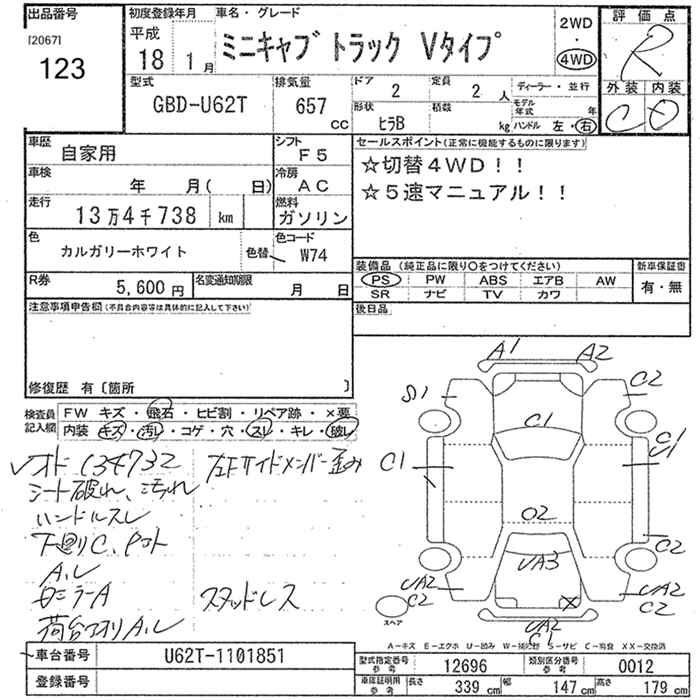 出品番号
[2067]
123
初度登録年月
平成
18 1月
車名・グレード
ミニキャブ トラック Vタイプ
2WD
・
4WD
評価点
R
外装 内装
C D
型式
GBD-U62T
排気量
657 cc
ドア
2
定員
2人
ディーラー・並行
形状
ヒラB
積載
kg
モデル年式 年
ハンドル 左・右
車歴
自家用
シフト
F5
車検
年 月( 日)
冷房
AC
走行
13万4千738 km
燃料
ガソリン
色
カルガリーホワイト
色替
色コード
W74
R券
5,600円
名変通知期限
月 日
セールスポイント(正常に機能するものに限ります)
☆切替4WD!!
☆5速マニュアル!!
装備品 (純正品に限り○をつけてください)
PS PW ABS エアB AW
SR ナビ TV カワ
新車保証書
有・無
後日品
注意事項申告欄(不具合内容等は具体的に記入して下さい)
修復歴 有〔箇所 〕
検査員記入欄
FW キズ・飛石・ヒビ割・リペア跡・×要
内装 キズ・汚レ・コゲ・穴・スレ・キレ・破レ
オド 134732
シート破れ、汚れ
ハンドルスレ
下廻りC、Pコト
A.レ
ミラーA
荷台アオリA.レ
左Fサイドメンバー歪み
スタッドレス
A1 A2
S1
C2
C1
C1
C1
U1
O2
C2
UA3
UA2
C2
UA2
C2
UA2
C1
スペア
A-キズ E-エクボ U-凹み W-補修跡 S-サビ C-腐食 XX-交換済
車台番号
U62T-1101851
登録番号
型式指定番号 参考
12696
類別区分番号 参考
0012
車庫証明用 参考
長さ 339cm
幅 147cm
高さ 179cm